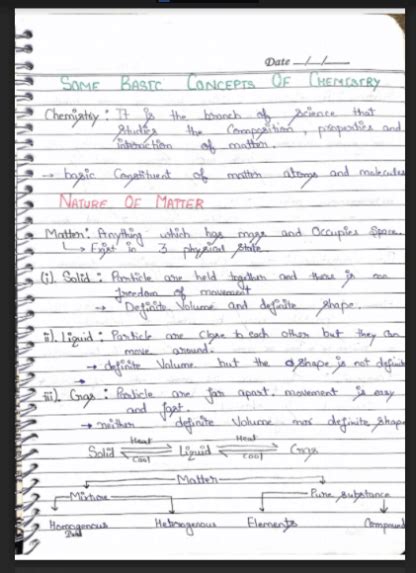 Date __/__/__
SOME BASIC CONCEPTS OF CHEMISTRY
Chemistry : It is the branch of science that
studies the composition, properties and
interaction of matter.
→ basic constituent of matter atoms and molecules
NATURE OF MATTER
Matter : Anything which has mass and Occupies Space.
↳ Exist in 3 physical state
(i). Solid : Particle are held together and there is no
freedom of movement
→ Definite Volume and definite shape.
ii). Liquid : Particle are close to each other but they can
move around.
→ definite Volume but the shape is not definite
→
iii). Gas : Particle are far apart. movement is easy
and fast.
→ neither definite Volume nor definite shape
Heat Heat
Solid ⇌ Liquid ⇌ Gas
Cool Cool
Matter
Mixture Pure substance
Homogenous Hetrogenous Elements Compound